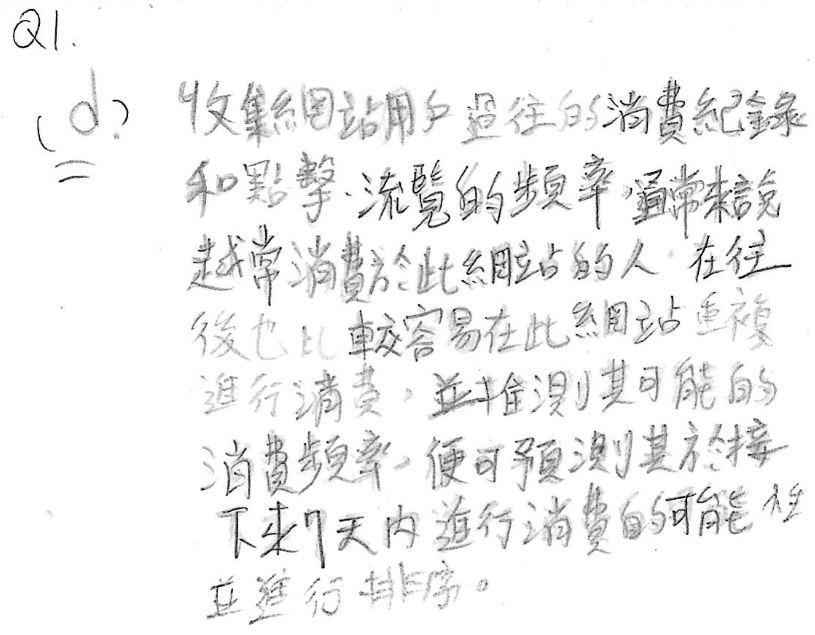 Q1.
(d) 收集網站用戶過往的消費紀錄
和點擊、流覽的頻率,通常來說
越常消費於此網站的人 在往
後也比較容易在此網站重複
進行消費,並推測其可能的
消費頻率,便可預測其於接
下來7天內進行消費的可能性
並進行排序。